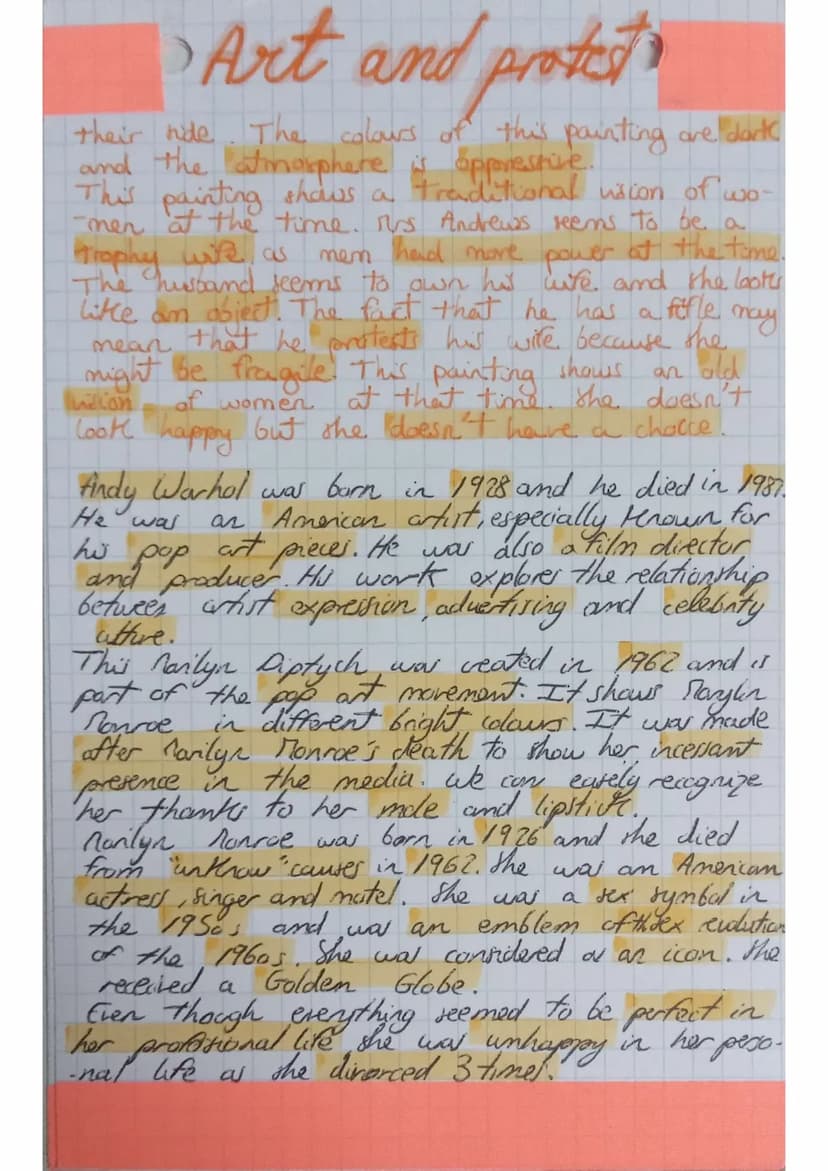 Art and protest
their side. The colours of this painting are dark
and the atmosphere is oppressive.
This painting shows a traditional vision of wo-
-men at the time. Mrs Andrews seems to be a
trophy wife as men had more power at the time.
The husband seems to own his wife and she looks
like an object. The fact that he has a fifle may
mean that he protests his wife because she
might be fragile. This painting shows an old
vision of women at that time. She doesn't
look happy but she doesn't have a choice.
Andy Warhol was born in 1928 and he died in 1987.
He was an American artist, especially known for
his pop art pieces. He was also a film director
and producer. His work explores the relationship
between artist expression, advertising and celebrity
culture.
This Marilyn Diptych was created in 1962 and is
part of the pop art movement. It shows Maryln
Monroe in different bright colours. It was made
after Marilyn Monroe's death to show her incessant
presence in the media. We can easely recognize
her thanks to her mole and lipstick.
Marilyn Monroe was born in 1926 and she died
from "unknow" causes in 1962. She was an American
actress, singer and motel. She was a sex symbol in
the 1950s and was an emblem of the sex revolution
of the 1960s. She was considered as an icon. She
received a Golden Globe.
Even though everything seemed to be perfect in
her profesional life, she was unhappy in her perso-
-nal life as she divorced 3 times.